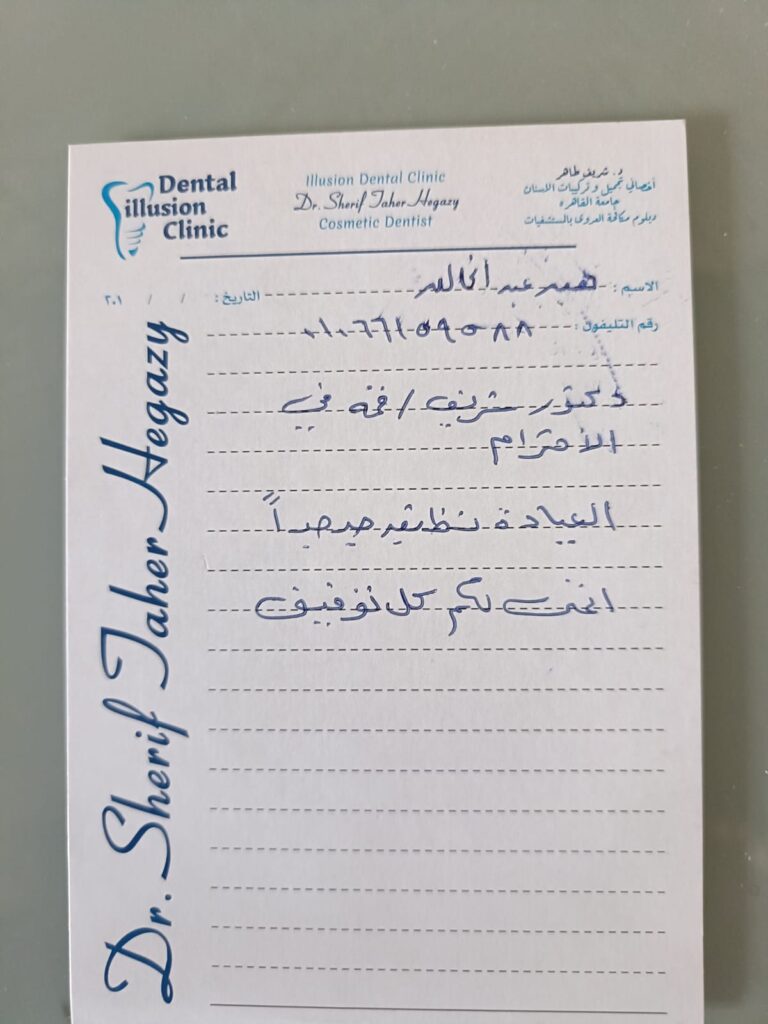 Dental
illusion
Clinic
Illusion Dental Clinic
Dr. Sherif Taher Hegazy
Cosmetic Dentist
د. شريف طاهر
أخصائي تجميل و تركيبات الاسنان
جامعة القاهره
دبلوم مكافحة العدوى بالمستشفيات
الاسم : عبد
التاريخ : / / ٢٠١
رقم التليفون : ٠١٠٦٦١٥٩٥٨٨
دكتور شريف / قمة في
الأحترام
العيادة نظيفه جيد جداً
اتمنى لكم كل توفيق
Dr. Sherif Taher Hegazy